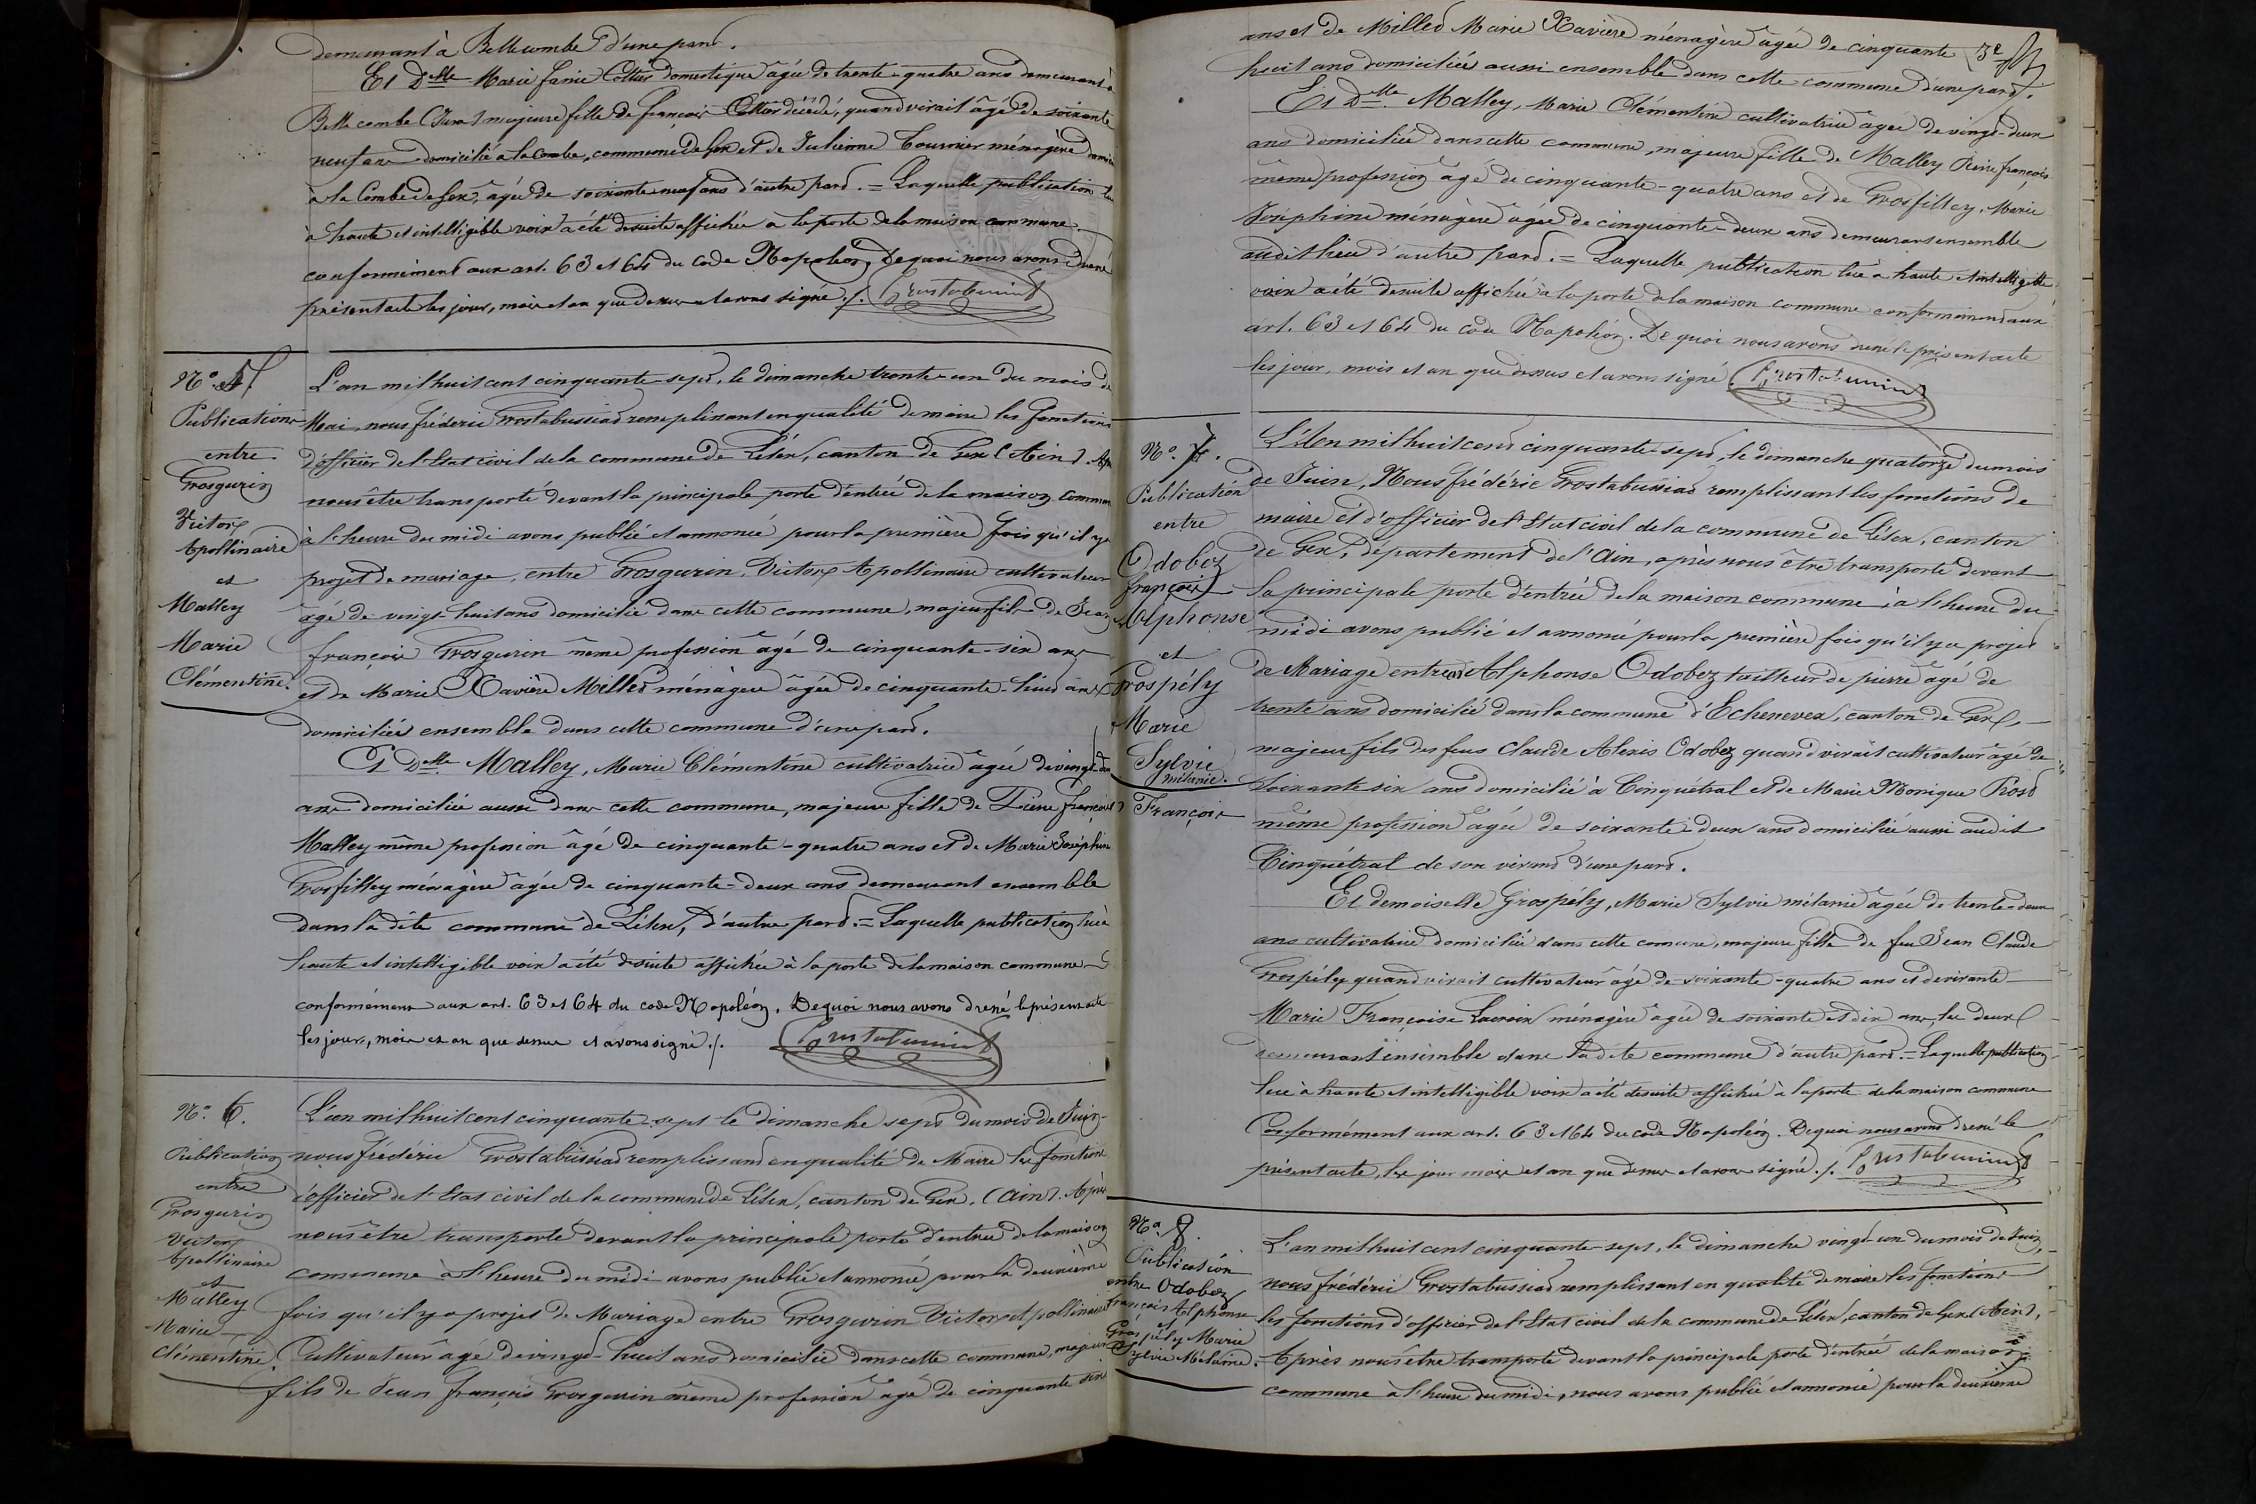 demeurant à Bellecombe d'une part.
Et Dlle Marie fanie Cottet domestique âgée de trente-quatre ans demeurant à
Bellecombe (Jura) majeure fille de françois Cottet décédé, quand vivait âgé de soixante
neuf ans domicilié à la Combe, commune de Gex et de Julienne Tournier ménagère
à la Combe de Gex, âgée de soixante neuf ans d'autre part. = Laquelle publication lue
à haute et intelligible voix a été desuite affichée à la porte de la maison commune
conformément aux art. 63 et 64 du code Napoléon, De quoi nous avons dressé
présent acte les jour, mois et an que dessus et avons signé ./. Grostabussiat
No. 5
Publication
entre
Grosgurin
Victor
Apollinaire
et
Malley
Marie
Clémentine.
L'an mil huit cent cinquante-sept, le dimanche trente-un du mois de
Mai, nous frédéric Grostabussiat remplissant en qualité de maire les fonctions
d'officier de l'Etat civil de la commune de Lélex, canton de Gex (Ain). Après
nous être transporté devant la principale porte d'entrée de la maison commune
à l'heure du midi avons publié et annoncé pour la première fois qu'il y a
projet de mariage, entre Grosgurin, Victor Apollinaire cultivateur
âgé de vingt-huit ans domicilié dans cette commune, majeur fils de Jean
françois Grosgurin même profession âgé de cinquante-six ans
et de Marie Xavière Millet ménagère âgée de cinquante-huit ans
domiciliés ensemble dans cette commune d'une part.
Et Dlle Malley, Marie Clémentine cultivatrice âgée de vingt-deux
ans domiciliée aussi dans cette commune, majeure fille de Pierre françois
Malley même profession âgé de cinquante-quatre ans et de Marie Joséphine
Grosfilley ménagère âgée de cinquante-deux ans demeurant ensemble
dans la dite commune de Lélex, d'autre part. = Laquelle publication lue à
haute et intelligible voix a été desuite affichée à la porte de la maison commune
conformément aux art. 63 et 64 du code Napoléon. De quoi nous avons dressé le présent acte
les jour, mois et an que dessus et avons signé ./. Grostabussiat
No. 6.
Publication
entre
Grosgurin
Victor
Apollinaire
et
Malley
Marie
Clémentine.
L'an mil huit cent cinquante-sept le dimanche sept du mois de Juin
nous frédéric Grostabussiat remplissant en qualité de Maire les fonctions
d'officier de l'Etat civil de la commune de Lélex, canton de Gex, (Ain). Après
nous être transporté devant la principale porte d'entrée de la maison
commune à l'heure du midi avons publié et annoncé pour la deuxième
fois qu'il y a projet de Mariage entre Grosgurin Victor Apollinaire
Cultivateur âgé de vingt-huit ans domicilié dans cette commune, majeur
fils de Jean françois Grosgurin même profession âgé de cinquante six
ans et de Millet Marie Xavière ménagère âgée de cinquante 3e
huit ans domiciliés aussi ensemble dans cette commune d'une part.
Et Dlle Malley, Marie Clémentine cultivatrice âgée de vingt-deux
ans domiciliée dans cette commune, majeure fille de Malley Pierre françois
même profession âgé de cinquante-quatre ans et de Grosfilley, Marie
Joséphine ménagère âgée de cinquante-deux ans demeurant ensemble
audit lieu d'autre part. = Laquelle publication lue à haute et intelligible
voix a été desuite affichée à la porte de la maison commune conformément aux
art. 63 et 64 du code Napoléon. De quoi nous avons dressé le présent acte
les jour, mois et an que dessus et avons signé. Grostabussiat
No. 7.
Publication
entre
Odobez
françois
Alphonse
et
Grospély
Marie
Sylvie
mélanie.
François
L'An mil huit cent cinquante-sept, le dimanche quatorze du mois
de Juin, Nous frédéric Grostabussiat remplissant les fonctions de
maire et d'officier de l'Etat civil de la commune de Lélex, canton
de Gex, département de l'Ain, après nous être transporté devant
la principale porte d'entrée de la maison commune, à l'heure du
midi avons publié et annoncé pour la première fois qu'il y a projet
de Mariage entre Alphonse Odobez tailleur de pierre âgé de
trente ans domicilié dans la commune d'Echenevex, canton de Gex,
majeur fils des feus Claude Alexis Odobez quand vivait cultivateur âgé de
soixante six ans domicilié à Cinquétral et de Marie Monique Prost
même profession âgée de soixante-deux ans domiciliée aussi audit
Cinquétral de son vivant d'une part.
Et demoiselle Grospély, Marie Sylvie mélanie âgée de trente-deux
ans cultivatrice domiciliée dans cette comune, majeure fille de feu Jean Claude
Grospély quand vivait cultivateur âgé de soixante-quatre ans et de vivante
Marie Françoise Lacroix ménagère âgée de soixante et dix ans, les deux
demeurant ensemble dans la dite commune d'autre part. = Laquelle publication
lue à haute et intelligible voix a été desuite affichée à la porte de la maison commune
Conformément aux art. 63 et 64 du code Napoléon. De quoi nous avons dressé le
présent acte, les jour mois et an que dessus et avons signé ./. Grostabussiat
No. 8.
Publication
entre Odobez
françois Alphonse
et
Grospély Marie
Sylvie Mélanie.
L'an mil huit cent cinquante-sept, le dimanche vingt-un du mois de Juin,
nous frédéric Grostabussiat remplissant en qualité de maire les fonctions
les fonctions d'officier de l'Etat civil de la commune de Lélex, canton de Gex (Ain),
Après nous être transporté devant la principale porte d'entrée de la maison
commune à l'heure du midi, nous avons publié et annoncé pour la deuxième